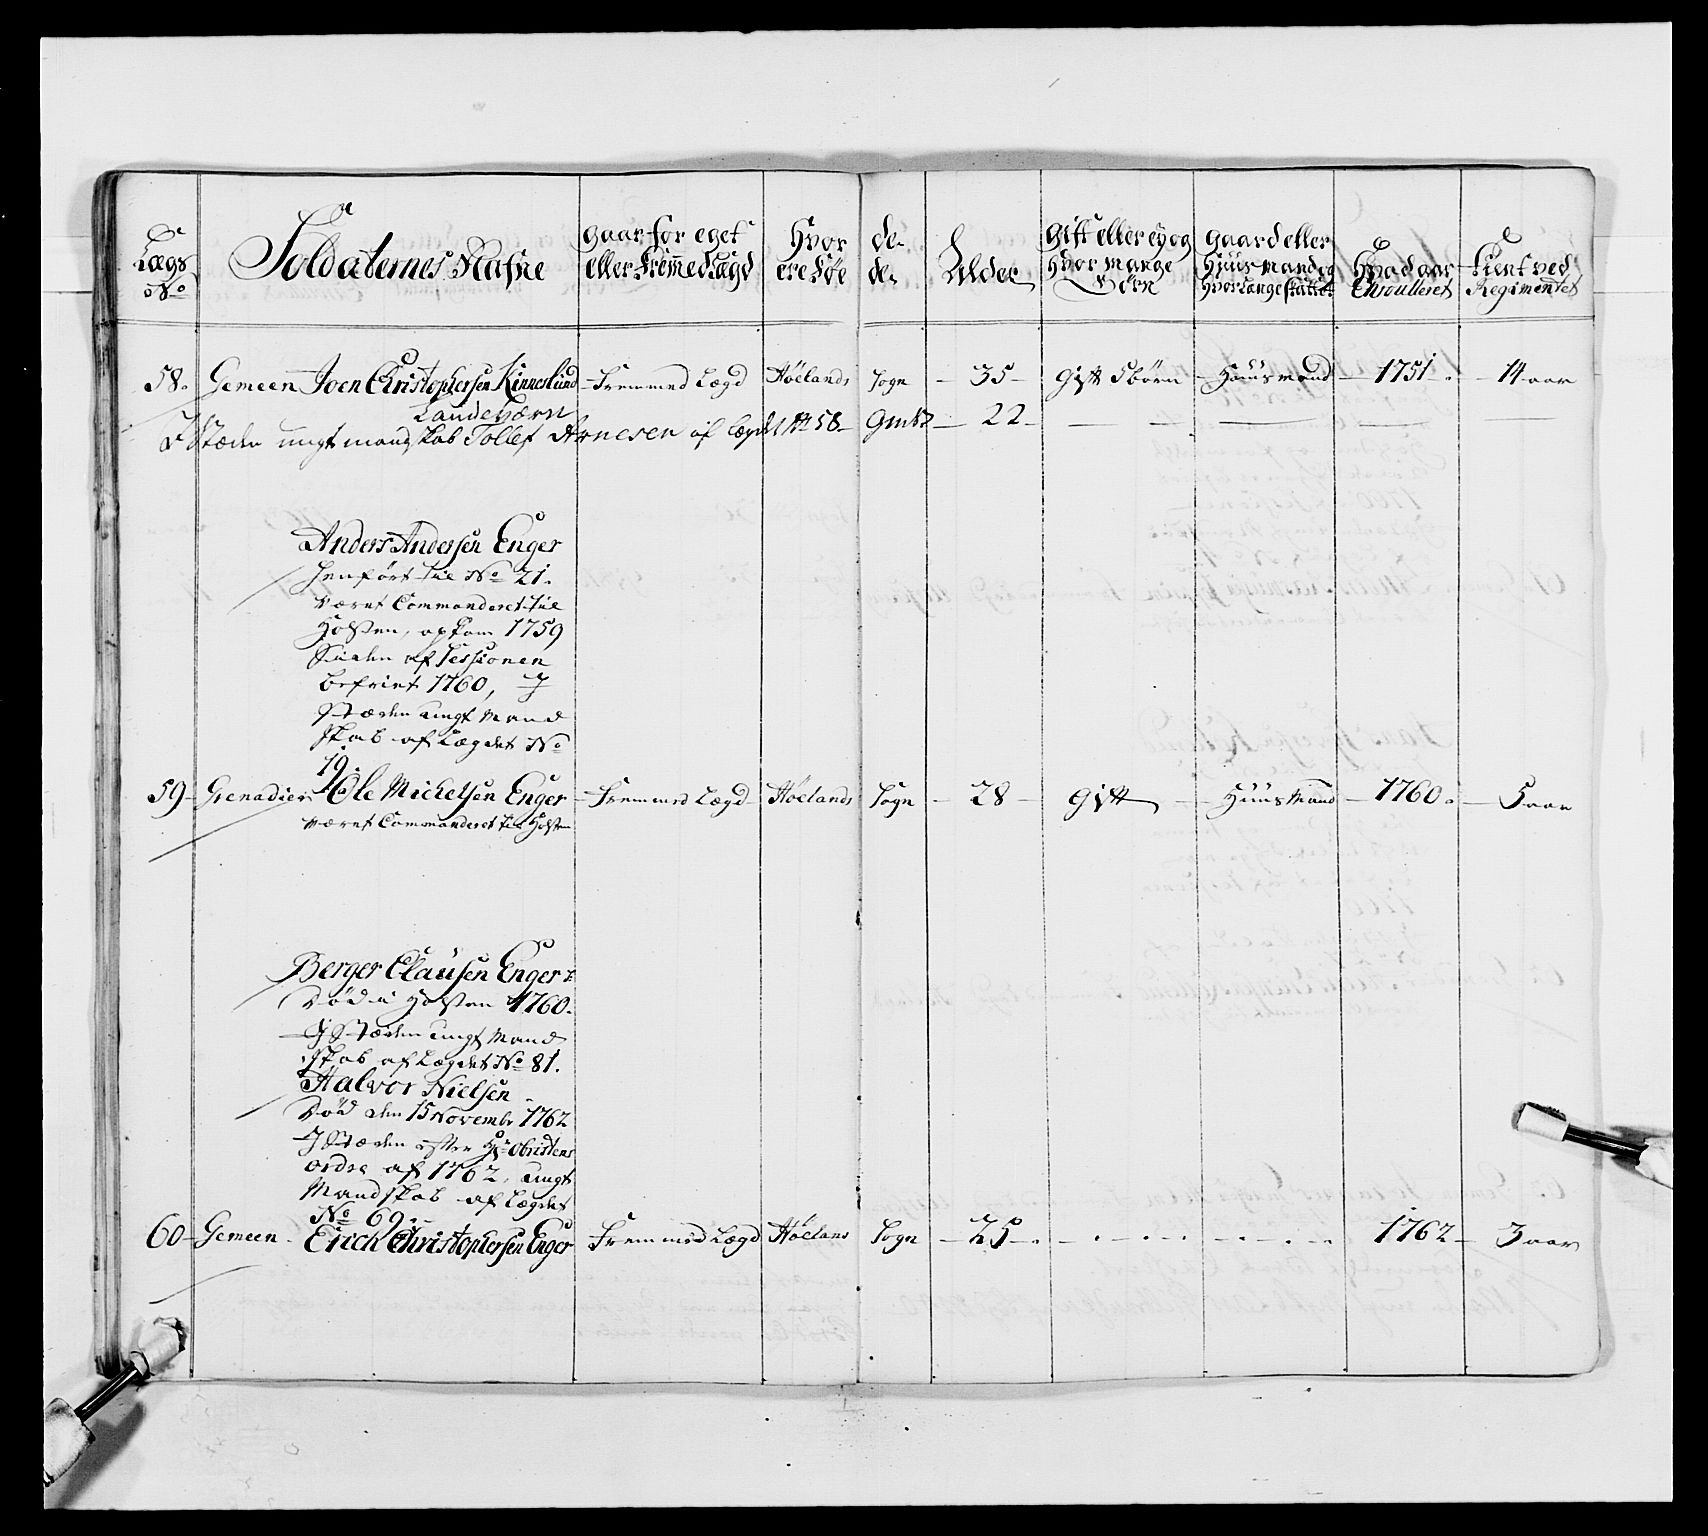 Lægs No | Soldaternes Nafne | gaar for eget eller Fremmed Lægd | Hvor ere føe | de- de- | Alder | Gift eller ey og Hvor mange Børn | gaard eller Huusmand og Hvor Lange skattet | Hvad aar Enroulleret | Tient ved Regimentet
58. Gemeen Joen Christophersen Kinneslund - Fremmed Lægd Høelands Sogn - 35 - Gift 5 børn - Huusmand - 1751. - 14 aar
Landeværn
I Stæden ungt mandskab Tollef Arnesen af Legdet No 58 - 22 -
Anders Andersen Enger
henført til No 21.
været Commanderet til
Holsten, opkom 1759
Siden af Sessionen
befriet 1760, I
Stæden ungt Mand
skab af Lægdet No
19.
59 - Grenadier Ole Michelsen Enger - Fremmed Lægd - Høelands Sogn - 28 - Gift - Huusmand - 1760. - 5 aar
været Commanderet til Holsten
Berger Clausen Enger
Død i Holsten 1760.
I Stæden ungt Mand
skab af Lægdet No 81.
Halvor Nielsen
Død den 15 Novembr 1762
I Stæden efter Hr Obristens
ordre af 1762, ungt
Mandskab af Lægdet
No 69.
60 - Gemeen. Erich Christophersen Enger Fremmed Lægd Høelans Sogn - 25 - 1762 - 3 aar